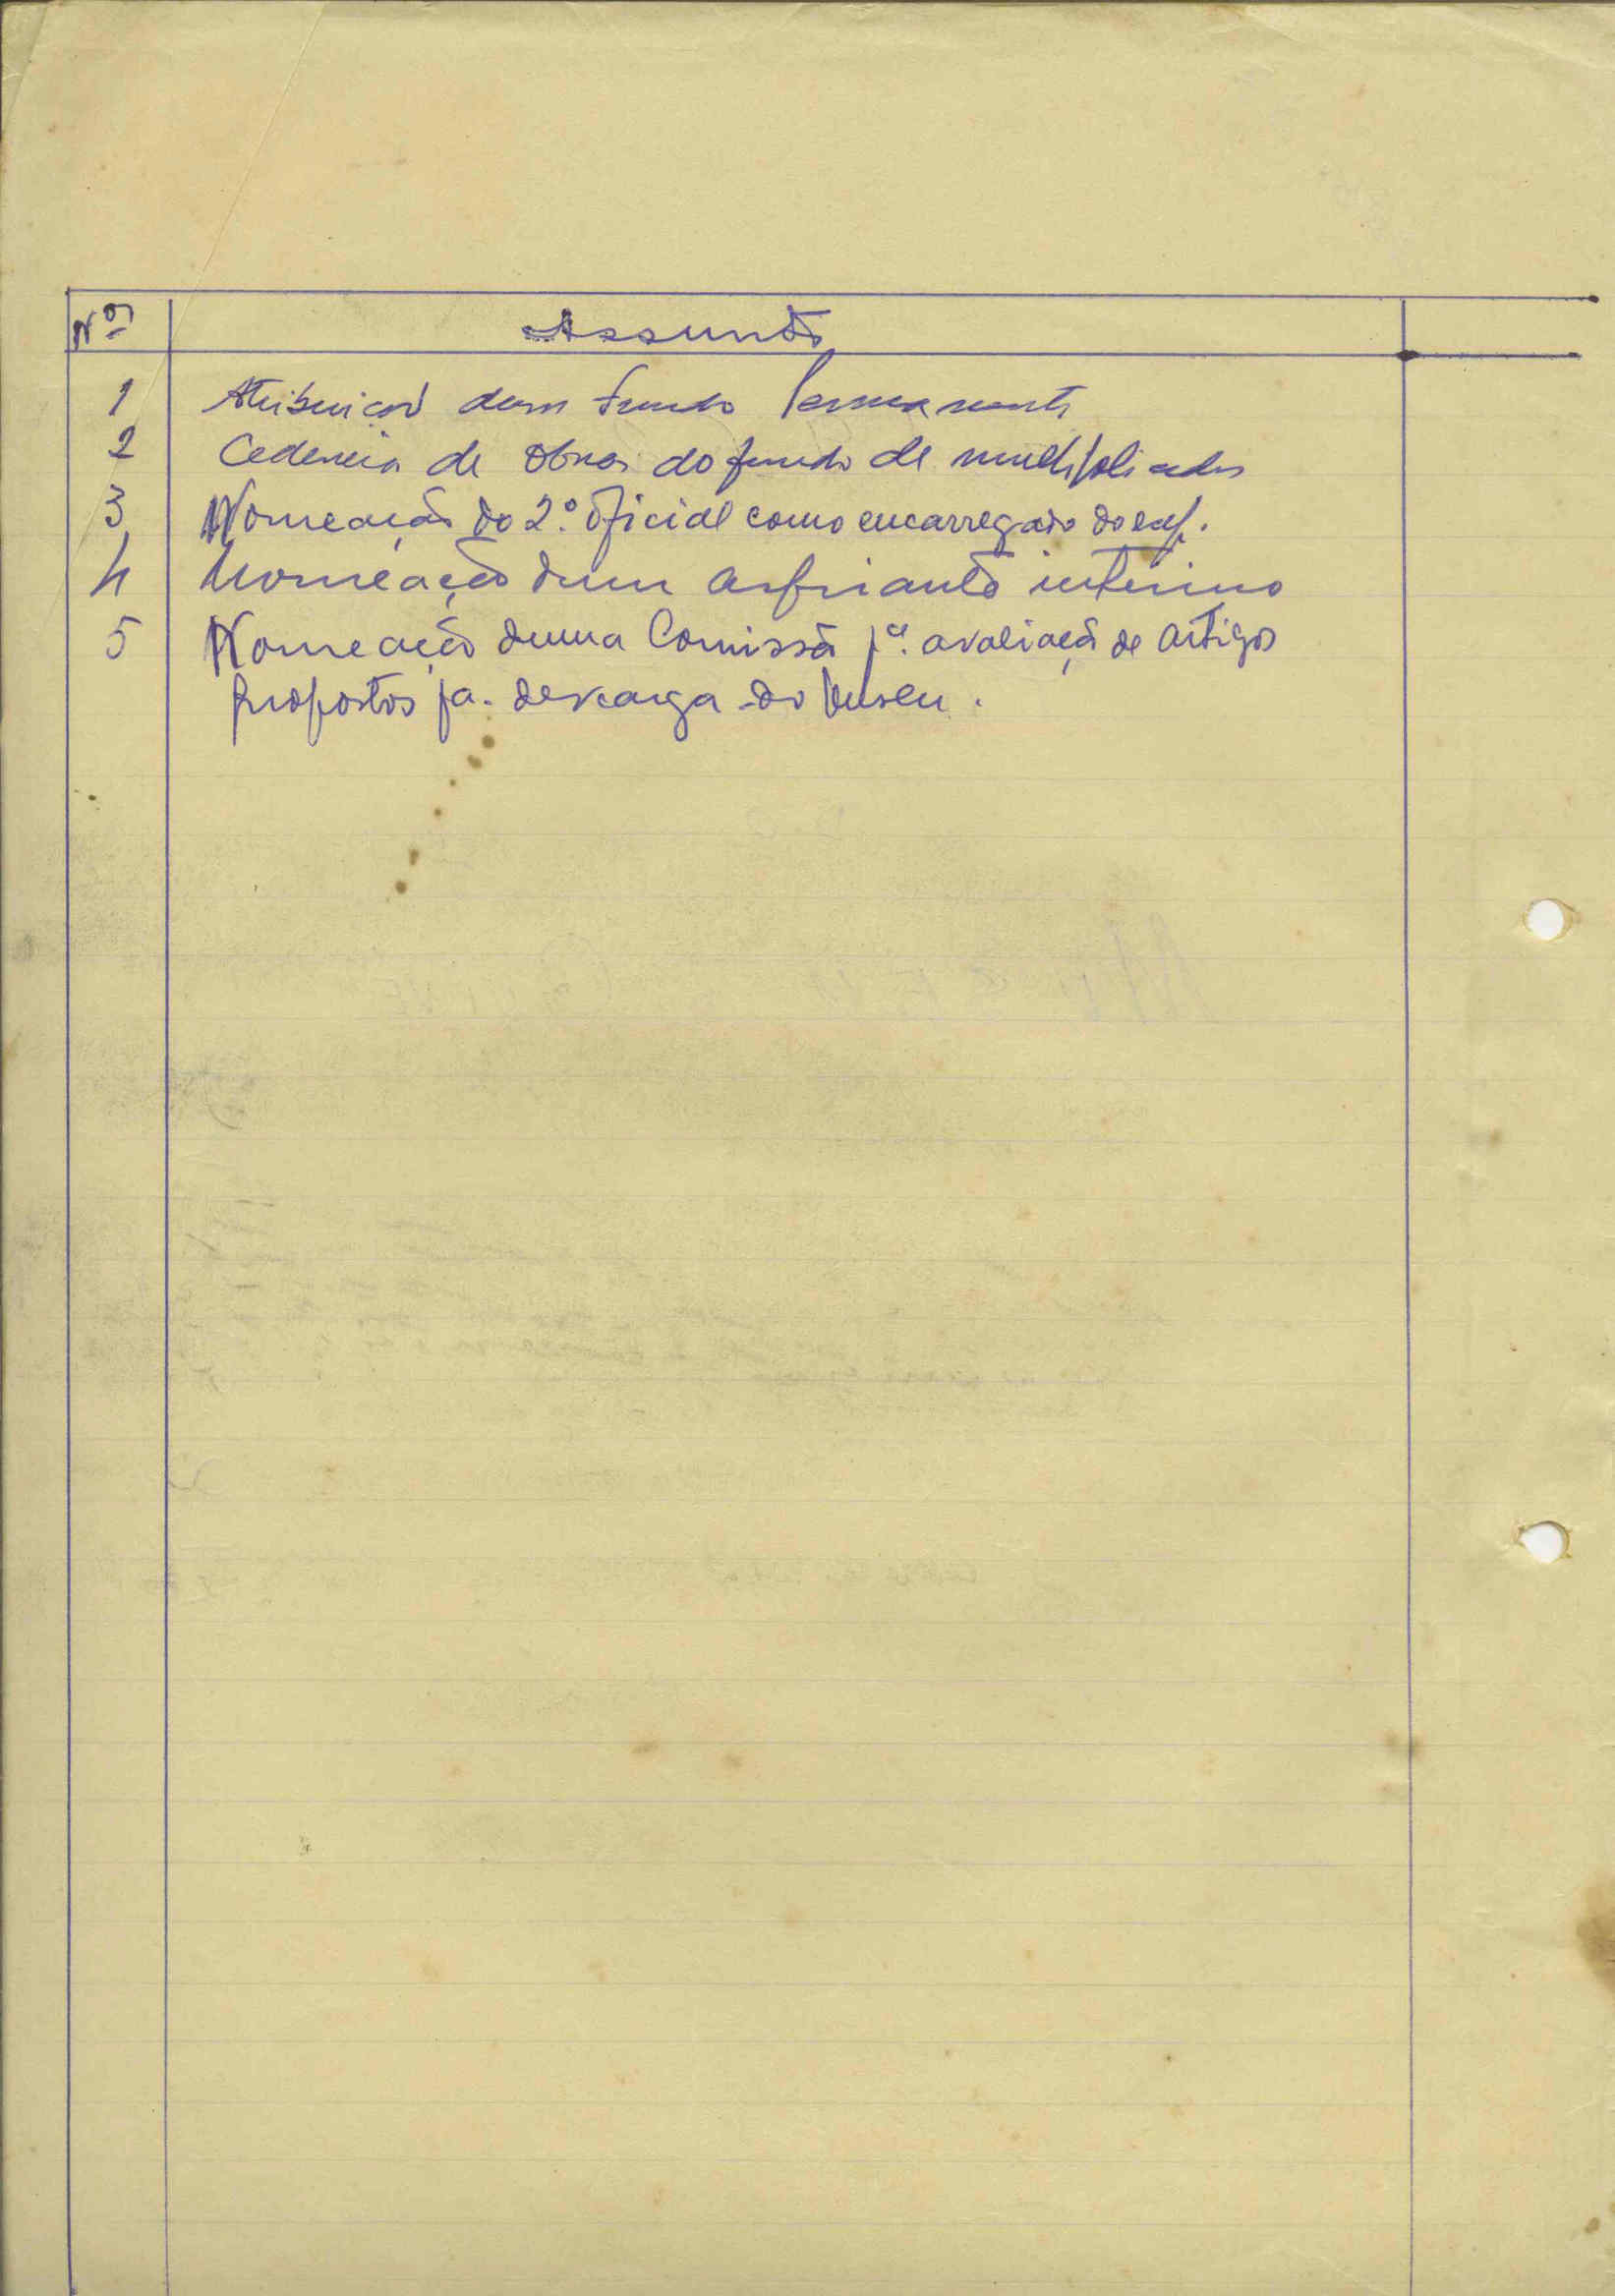 Nos Assunto
1 Atribuição dum Fundo Permanente
2 Cedencia de obras do fundo de multiplicados
3 Nomeação do 2.º oficial como encarregado do exp.
4 Nomeação dum aspirante interino
5 Nomeação duma Comissão pª. avaliação de artigos
propostos pa. descarga do Museu.